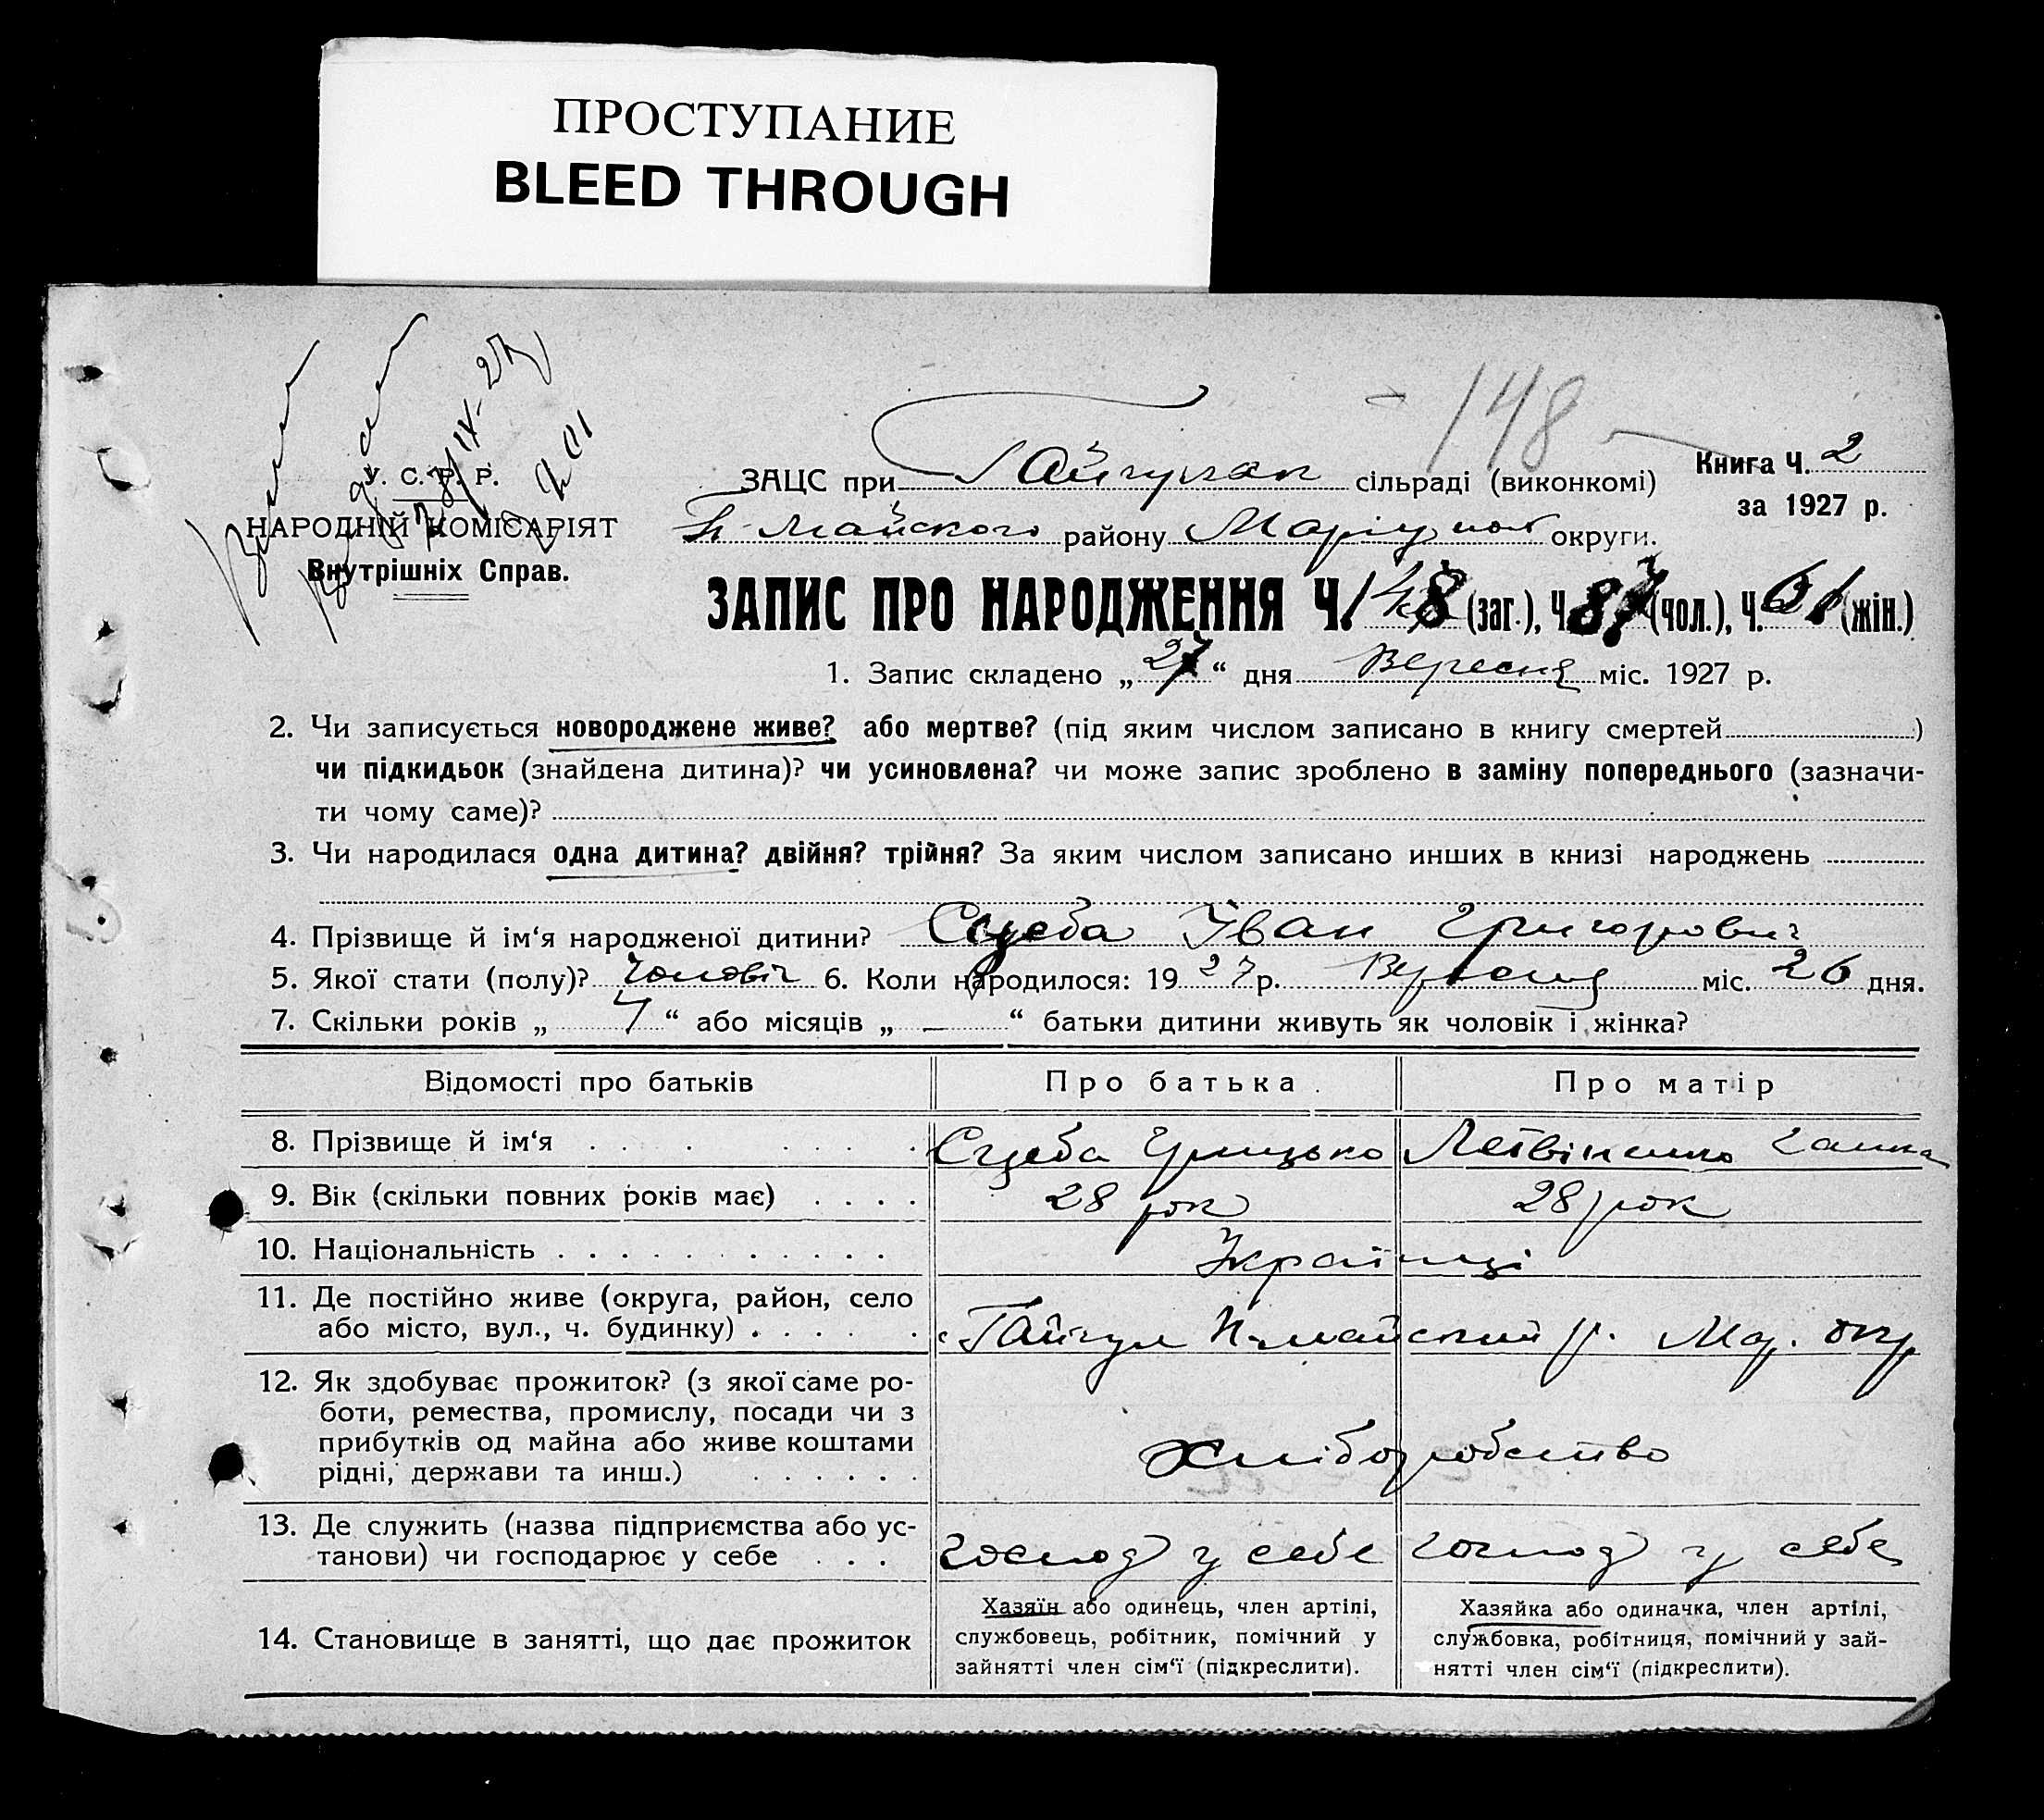 ПРОСТУПАНИЕ
BLEED THROUGH
- 148 -
У. С. Р. Р.
НАРОДНІЙ КОМІСАРІЯТ
Внутрішніх Справ.
28/IX-27
ЗАЦС при сільраді (виконкомі)
Книга Ч. 2
за 1927 р.
П-Майского району Маріупол округи.
ЗАПИС ПРО НАРОДЖЕННЯ Ч. 148 (заг.), Ч. 87 (чол.), Ч. 61 (жін.)
1. Запис складено „27“ дня Вересня міс. 1927 р.
2. Чи записується новороджене живе? або мертве? (під яким числом записано в книгу смертей)
чи підкидьок (знайдена дитина)? чи усиновлена? чи може запис зроблено в заміну попереднього (зазначи-
ти чому саме)?
3. Чи народилася одна дитина? двійня? трійня? За яким числом записано инших в книзі народжень
4. Прізвище й ім‘я народженої дитини? Іван Григорович
5. Якої стати (полу)? чоловіч 6. Коли народилося: 1927 р. Вересня міс. 26 дня.
7. Скільки років „7“ або місяців „—“ батьки дитини живуть як чоловік і жінка?
Відомості про батьків Про батька Про матір
8. Прізвище й ім‘я Грицько Ганна
9. Вік (скільки повних років має) 28 рок 28 рок
10. Національність Українці
11. Де постійно живе (округа, район, село
або місто, вул., ч. будинку) с. Гайчул П-майский р. Мар. окр
12. Як здобуває прожиток? (з якої саме ро-
боти, ремества, промислу, посади чи з
прибутків од майна або живе коштами
рідні, держави та инш.) хліборобство
13. Де служить (назва підприємства або ус-
танови) чи господарює у себе господ у себе господ у себе
14. Становище в занятті, що дає прожиток
Хазяїн або одинець, член артілі,
службовець, робітник, помічний у
зайнятті член сім‘ї (підкреслити).
Хазяйка або одиначка, член артілі,
службовка, робітниця, помічний у зай-
нятті член сім‘ї (підкреслити).